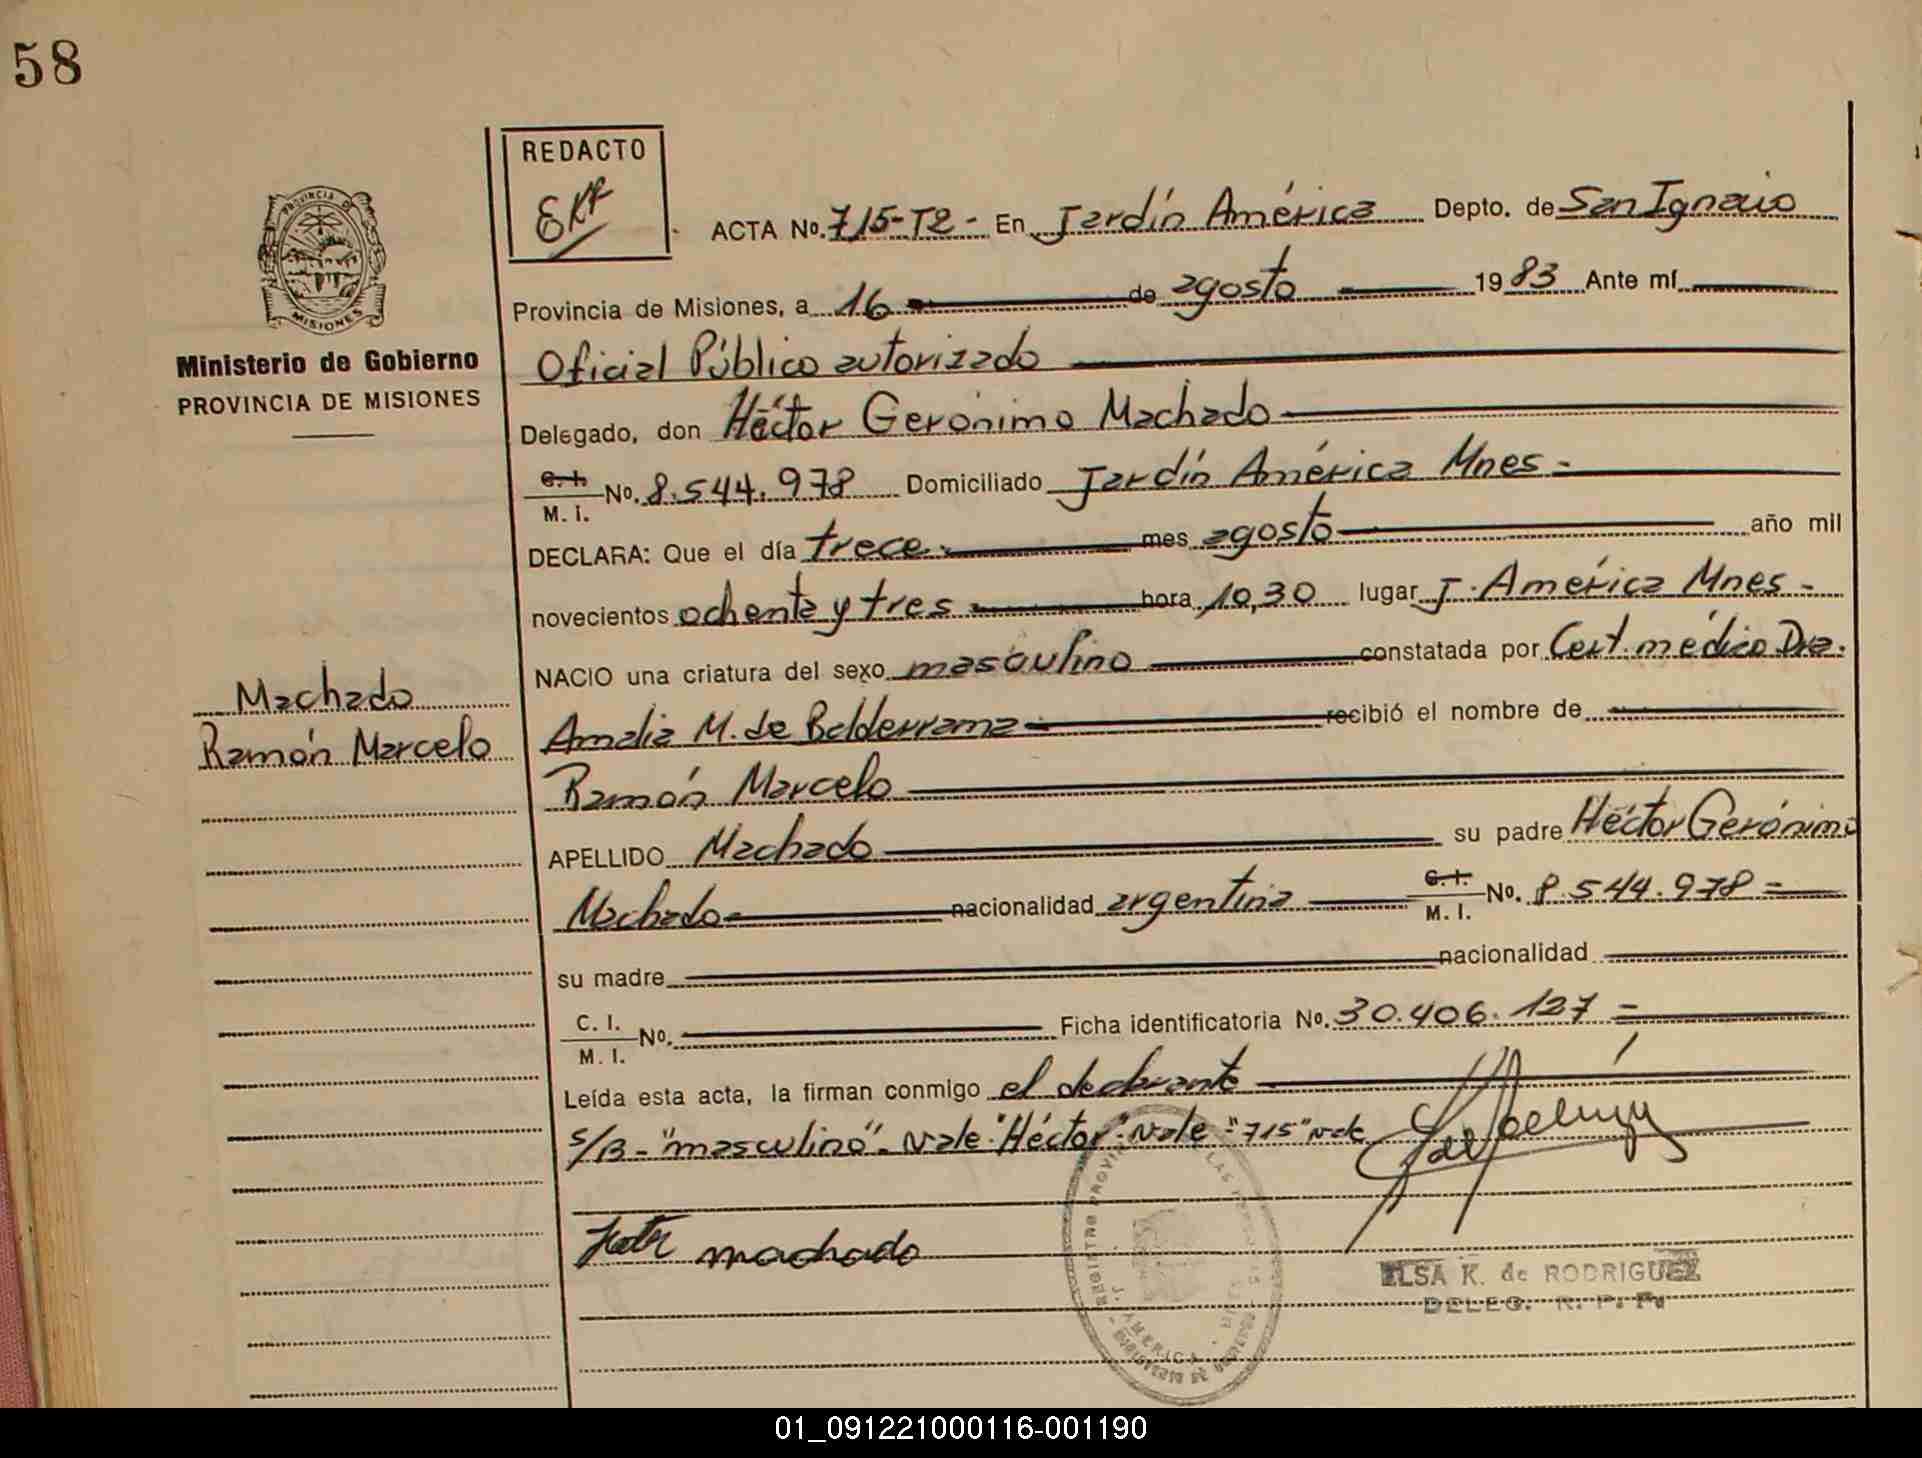 58
REDACTO
PROVINCIA DE
MISIONES
Ministerio de Gobierno
PROVINCIA DE MISIONES
ACTA No. 715-T2- En Jardín América Depto. de San Ignacio
Provincia de Misiones, a 16 de agosto 1983 Ante mí
Oficial Público autorizado
Delegado, don Héctor Gerónimo Machado
C. I. / M. I. No. 8.544.978 Domiciliado Jardín América Mnes-
DECLARA: Que el día trece mes agosto año mil
novecientos ochenta y tres hora 10,30 lugar J. América Mnes-
NACIO una criatura del sexo masculino constatada por Cert. médico Dra.
Amalia M. de Balderrama recibió el nombre de
Ramón Marcelo
APELLIDO Machado su padre Héctor Gerónimo
Machado nacionalidad argentina C. I. / M. I. No. 8.544.978=
su madre nacionalidad
C. I. / M. I. No. Ficha identificatoria No. 30.406.127=
Leída esta acta, la firman conmigo el declarante
S/B-"masculino"-vale-"Héctor"-vale-"715"vale
machado
ELSA K. de RODRIGUEZ
DELEG. R. P. P.
J. AMERICA
Machado
Ramón Marcelo
01_091221000116-001190